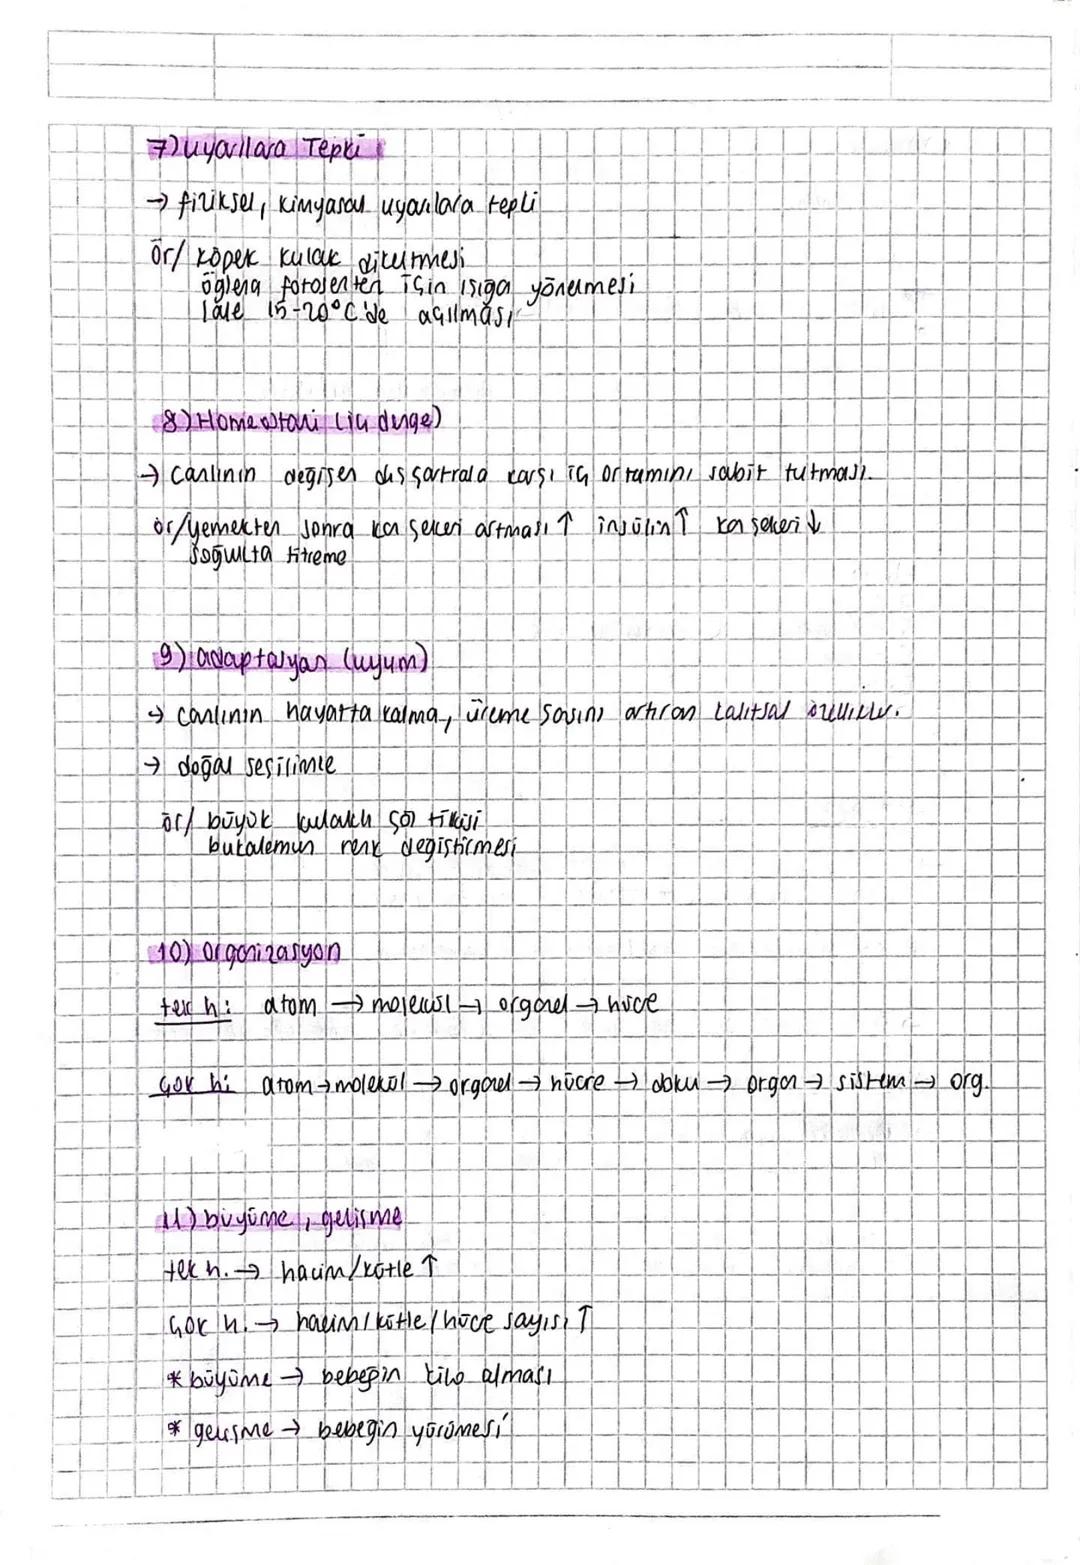 7) uyarılara Tepki
→ fiziksel, kimyasal uyarılara tepki
ör/ köpek kulak dikelmesi
öglena fotosentez için ışığa yönelmesi
lale 15-20°C'de açılması
8) Homeostazi (iç denge)
→ Canlının değişen dış şartlara karşı iç ortamını sabit tutması.
ör/yemekten sonra kan şekeri artması ↑ insülin ↑ kan şekeri ↓
soğukta titreme
9) adaptasyon (uyum)
→ canlının hayatta kalma, üreme şansını artıran kalıtsal özellikler.
→ doğal seçilimle
ör/ büyük kulaklı çöl tilkisi
bukalemun renk değiştirmesi
10) Organizasyon
tek h: atom → molekül → organel → hücre
çok h: atom → molekül → organel → hücre → doku → organ → sistem → org.
11) büyüme, gelişme
tek h. → hacim/kütle ↑
çok h. → hacim/kütle/hücre sayısı ↑
* büyüme → bebeğin kilo alması
* gelişme → bebeğin yürümesi